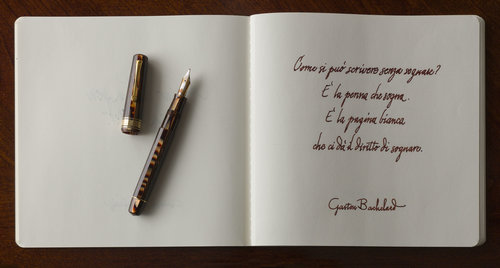 Come si può scrivere senza sognare?
E' la penna che sogna.
E' la pagina bianca
che ci dà il diritto di sognare.
Gaston Bachelard